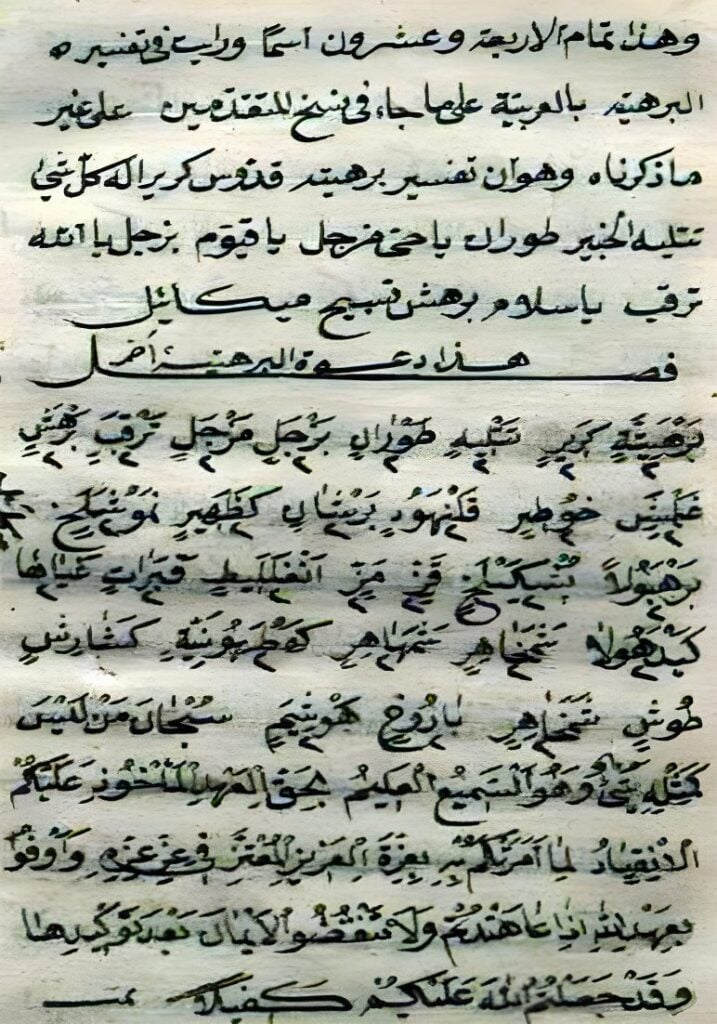 وهذا تمام الاربعة وعشرون اسمًا ورايت فى تفسيره
البرهتيه بالعربية على ما جاء فى نسخ للمتقدمين على غير
ما ذكرناه وهوان تفسير برهيته قدوس كرير اله كل شئ
تتليه الخبير طوران ياحى مزجل ياقيوم بزجل يا الله
ترقب ياسلام برهش تسبيح ميكائيل
فصل هذا دعوة البرهتية أخر
بَرْهَيْتَةٍ كَرِيرٍ تَتْلِيهٍ طَوْرَانٍ بَزْجَلٍ مَزْجَلٍ تَرْقَبٍ بَرْهَشٍ
غَلْمَشٍ خَوْطِيرٍ قَلْنَهُودٍ بَرْشَانٍ كَظْهِيرٍ نَمَوْشَلَخٍ
بَرْهَيُولاً بَشْكَيْلَخٍ قَزٍ مَزٍ اَنْغَلَلِيطٍ قَبَرَاتٍ غَيَاهَا
كَيْدَهُولا شَمْخَاهِرٍ شَمْهَاهِرٍ كَوْطَهُونِيَةٍ كَشَارِشٍ
طُوشٍ شَمْخَاهِرٍ يَارُوخٍ هَوْشِيَمٍ سُبْحَانَ مَنْ لَيْسَ
كَمِثْلِهِ شَئٌ وَهُوَ السَّمِيعُ الْعَلِيمُ بِحَقِ الْعَهْدِ الْمَأْخُوذِ عَلَيْكُمْ
الاِنْقِيَادُ لِمَا آمَرْتُكُمْ بِهِ بِعِزَّةِ الْعَزِيزِ الْمُعْتَزِّ فِى عِزِّ عِزِّهِ وَاَوْفُوا
بِعَهْدِ اللهِ اِذَا عَاهَدْتُمْ وَلَا تَنْقُضُوا الْاَيْمَانَ بَعْدَ تَوْكِيدِهَا
وَقَدْ جَعَلْتُمُ اللهَ عَلَيْكُمْ كَفِيلاً تمت